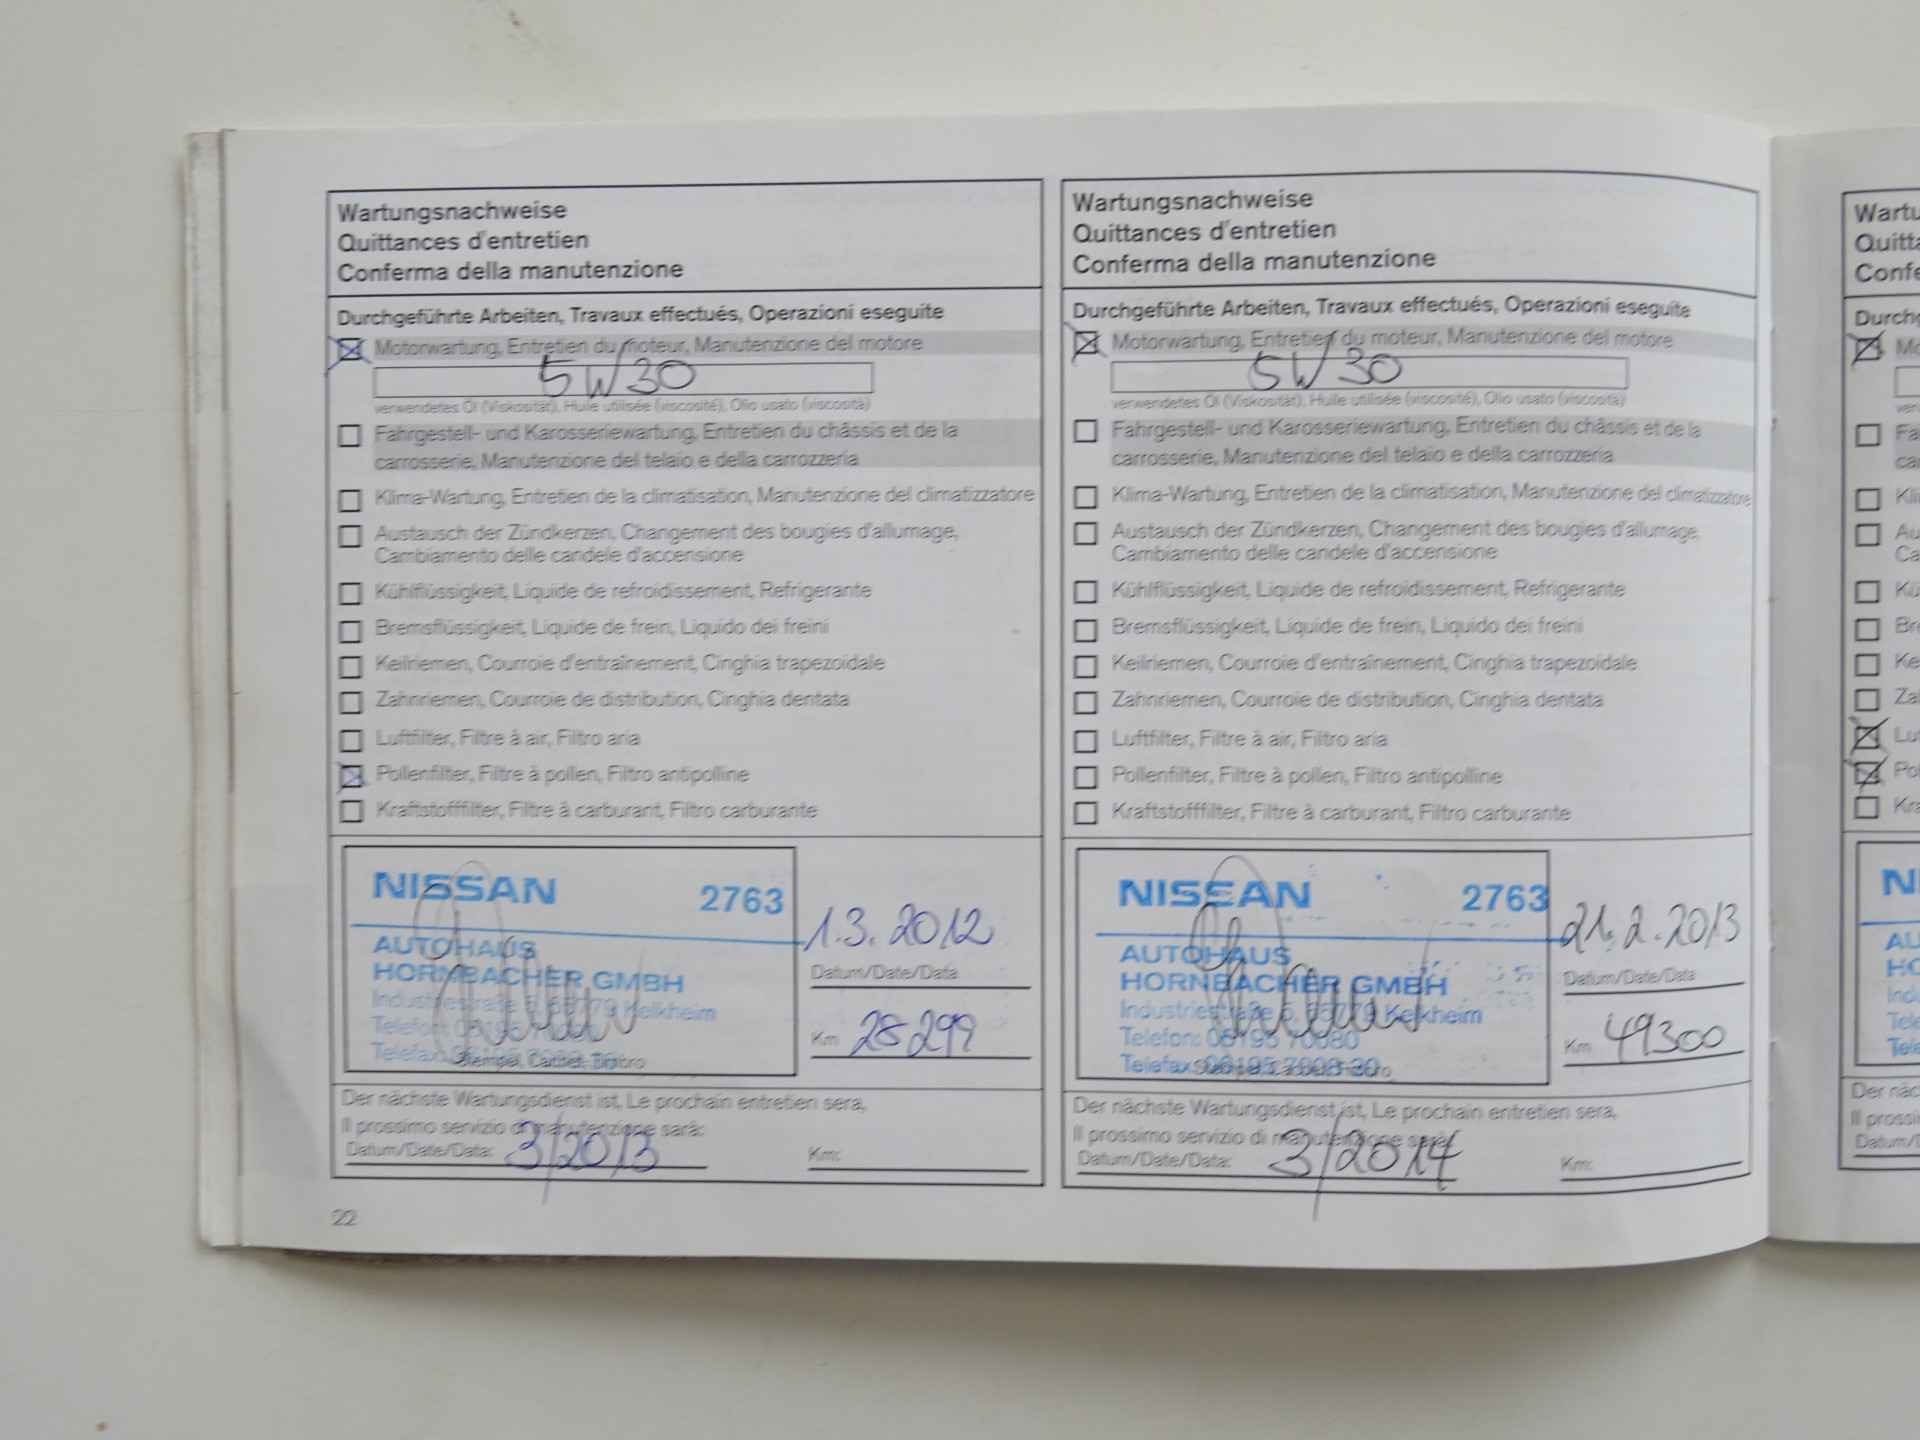 Wartungsnachweise
Quittances d'entretien
Conferma della manutenzione
Durchgeführte Arbeiten, Travaux effectués, Operazioni eseguite
Motorwartung, Entretien du moteur, Manutenzione del motore
5W30
verwendetes Öl (Viskosität), Huile utilisée (viscosité), Olio usato (viscosità)
Fahrgestell- und Karosseriewartung, Entretien du châssis et de la
carrosserie, Manutenzione del telaio e della carrozzeria
Klima-Wartung, Entretien de la climatisation, Manutenzione del climatizzatore
Austausch der Zündkerzen, Changement des bougies d'allumage,
Cambiamento delle candele d'accensione
Kühlflüssigkeit, Liquide de refroidissement, Refrigerante
Bremsflüssigkeit, Liquide de frein, Liquido dei freini
Keilriemen, Courroie d'entraînement, Cinghia trapezoidale
Zahnriemen, Courroie de distribution, Cinghia dentata
Luftfilter, Filtre à air, Filtro aria
Pollenfilter, Filtre à pollen, Filtro antipolline
Kraftstofffilter, Filtre à carburant, Filtro carburante
NISSAN 2763
AUTOHAUS
HORNBACHER GMBH
Industriestraße 5, 65779 Kelkheim
Telefon:
Telefax:
1.3.2012
Datum/Date/Data
Km 28299
Der nächste Wartungsdienst ist, Le prochain entretien sera,
Il prossimo servizio di manutenzione sarà:
Datum/Date/Data: 3/2013 Km:
22
Wartungsnachweise
Quittances d'entretien
Conferma della manutenzione
Durchgeführte Arbeiten, Travaux effectués, Operazioni eseguite
Motorwartung, Entretien du moteur, Manutenzione del motore
5W30
verwendetes Öl (Viskosität), Huile utilisée (viscosité), Olio usato (viscosità)
Fahrgestell- und Karosseriewartung, Entretien du châssis et de la
carrosserie, Manutenzione del telaio e della carrozzeria
Klima-Wartung, Entretien de la climatisation, Manutenzione del climatizzatore
Austausch der Zündkerzen, Changement des bougies d'allumage,
Cambiamento delle candele d'accensione
Kühlflüssigkeit, Liquide de refroidissement, Refrigerante
Bremsflüssigkeit, Liquide de frein, Liquido dei freini
Keilriemen, Courroie d'entraînement, Cinghia trapezoidale
Zahnriemen, Courroie de distribution, Cinghia dentata
Luftfilter, Filtre à air, Filtro aria
Pollenfilter, Filtre à pollen, Filtro antipolline
Kraftstofffilter, Filtre à carburant, Filtro carburante
NISSAN 2763
AUTOHAUS
HORNBACHER GMBH
Industriestraße 5, 65779 Kelkheim
Telefon: 06195 70080
Telefax:
21.2.2013
Datum/Date/Data
Km 49300
Der nächste Wartungsdienst ist, Le prochain entretien sera,
Il prossimo servizio di manutenzione sarà:
Datum/Date/Data: 3/2014 Km: